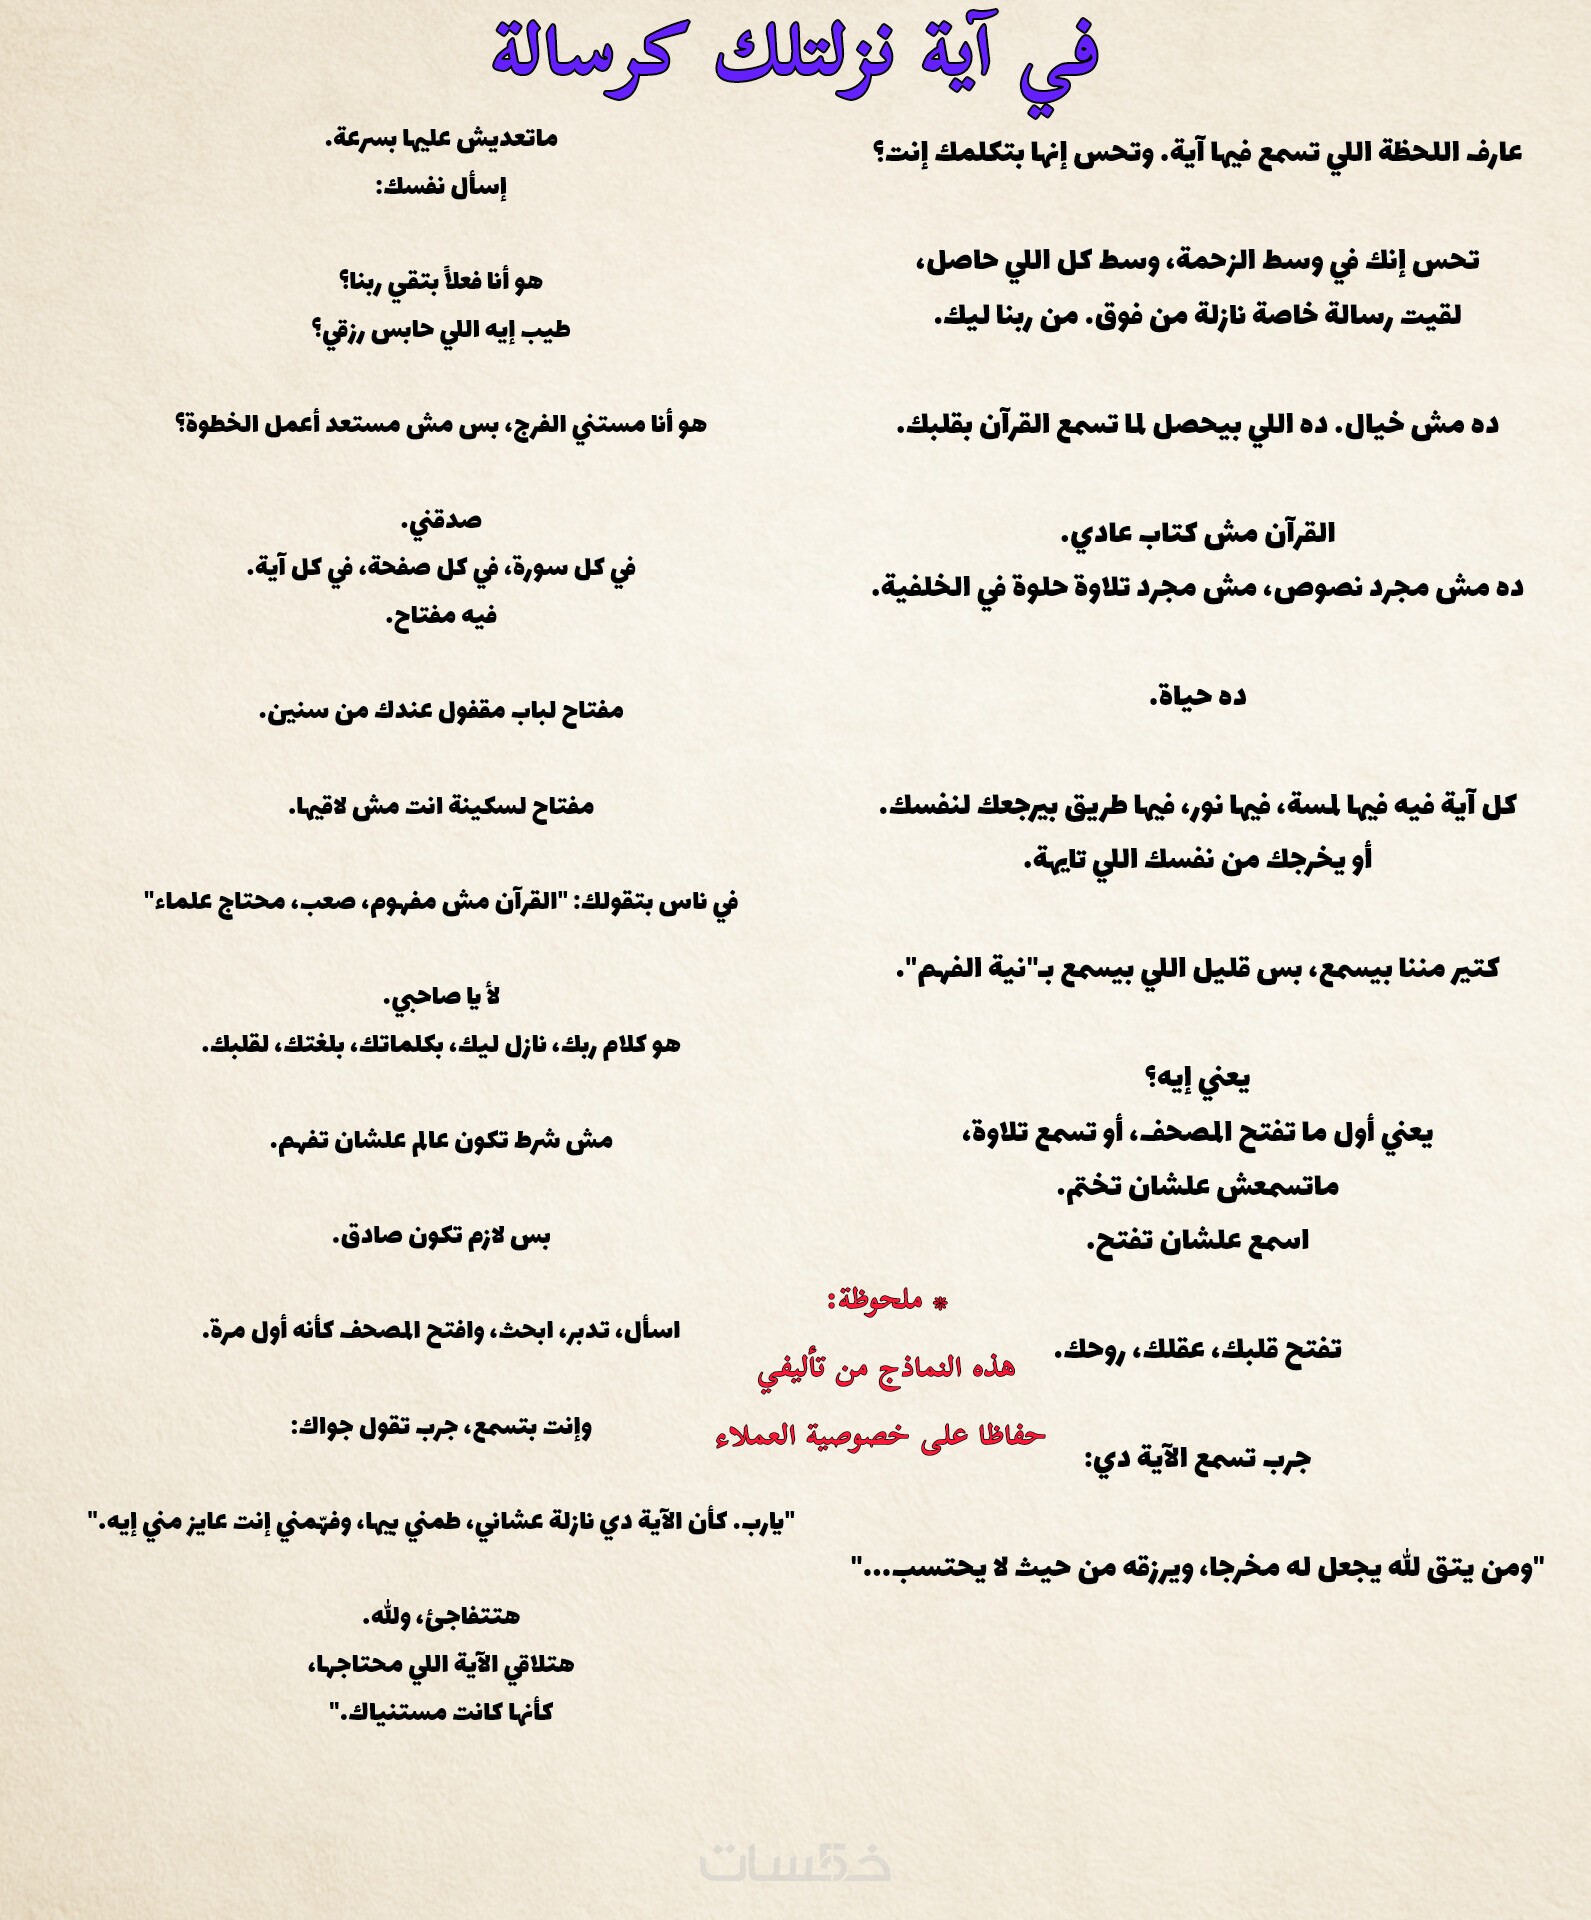 في آية نزلتلك كرسالة
عارف اللحظة اللي تسمع فيها آية. وتحس إنها بتكلمك إنت؟
تحس إنك في وسط الزحمة، وسط كل اللي حاصل،
لقيت رسالة خاصة نازلة من فوق. من ربنا ليك.
ده مش خيال. ده اللي بيحصل لما تسمع القرآن بقلبك.
القرآن مش كتاب عادي.
ده مش مجرد نصوص، مش مجرد تلاوة حلوة في الخلفية.
ده حياة.
كل آية فيه فيها لمسة، فيها نور، فيها طريق بيرجعك لنفسك.
أو يخرجك من نفسك اللي تايهة.
كتير مننا بيسمع، بس قليل اللي بيسمع بـ"نية الفهم".
يعني إيه؟
يعني أول ما تفتح المصحف، أو تسمع تلاوة،
ماتسمعش علشان تختم.
اسمع علشان تفتح.
تفتح قلبك، عقلك، روحك.
جرب تسمع الآية دي:
"ومن يتق لله يجعل له مخرجا، ويرزقه من حيث لا يحتسب..."
ماتعديش عليها بسرعة.
إسأل نفسك:
هو أنا فعلاً بتقي ربنا؟
طيب إيه اللي حابس رزقي؟
هو أنا مستني الفرج، بس مش مستعد أعمل الخطوة؟
صدقني.
في كل سورة، في كل صفحة، في كل آية.
فيه مفتاح.
مفتاح لباب مقفول عندك من سنين.
مفتاح لسكينة انت مش لاقيها.
في ناس بتقولك: "القرآن مش مفهوم، صعب، محتاج علماء"
لأ يا صاحبي.
هو كلام ربك، نازل ليك، بكلماتك، بلغتك، لقلبك.
مش شرط تكون عالم علشان تفهم.
بس لازم تكون صادق.
اسأل، تدبر، ابحث، وافتح المصحف كأنه أول مرة.
وإنت بتسمع، جرب تقول جواك:
"يارب. كأن الآية دي نازلة عشاني، طمني بيها، وفهّمني إنت عايز مني إيه."
هتتفاجئ، ولله.
هتلاقي الآية اللي محتاجها،
كأنها كانت مستنياك."
* ملحوظة:
هذه النماذج من تأليفي
حفاظا على خصوصية العملاء
خمسات